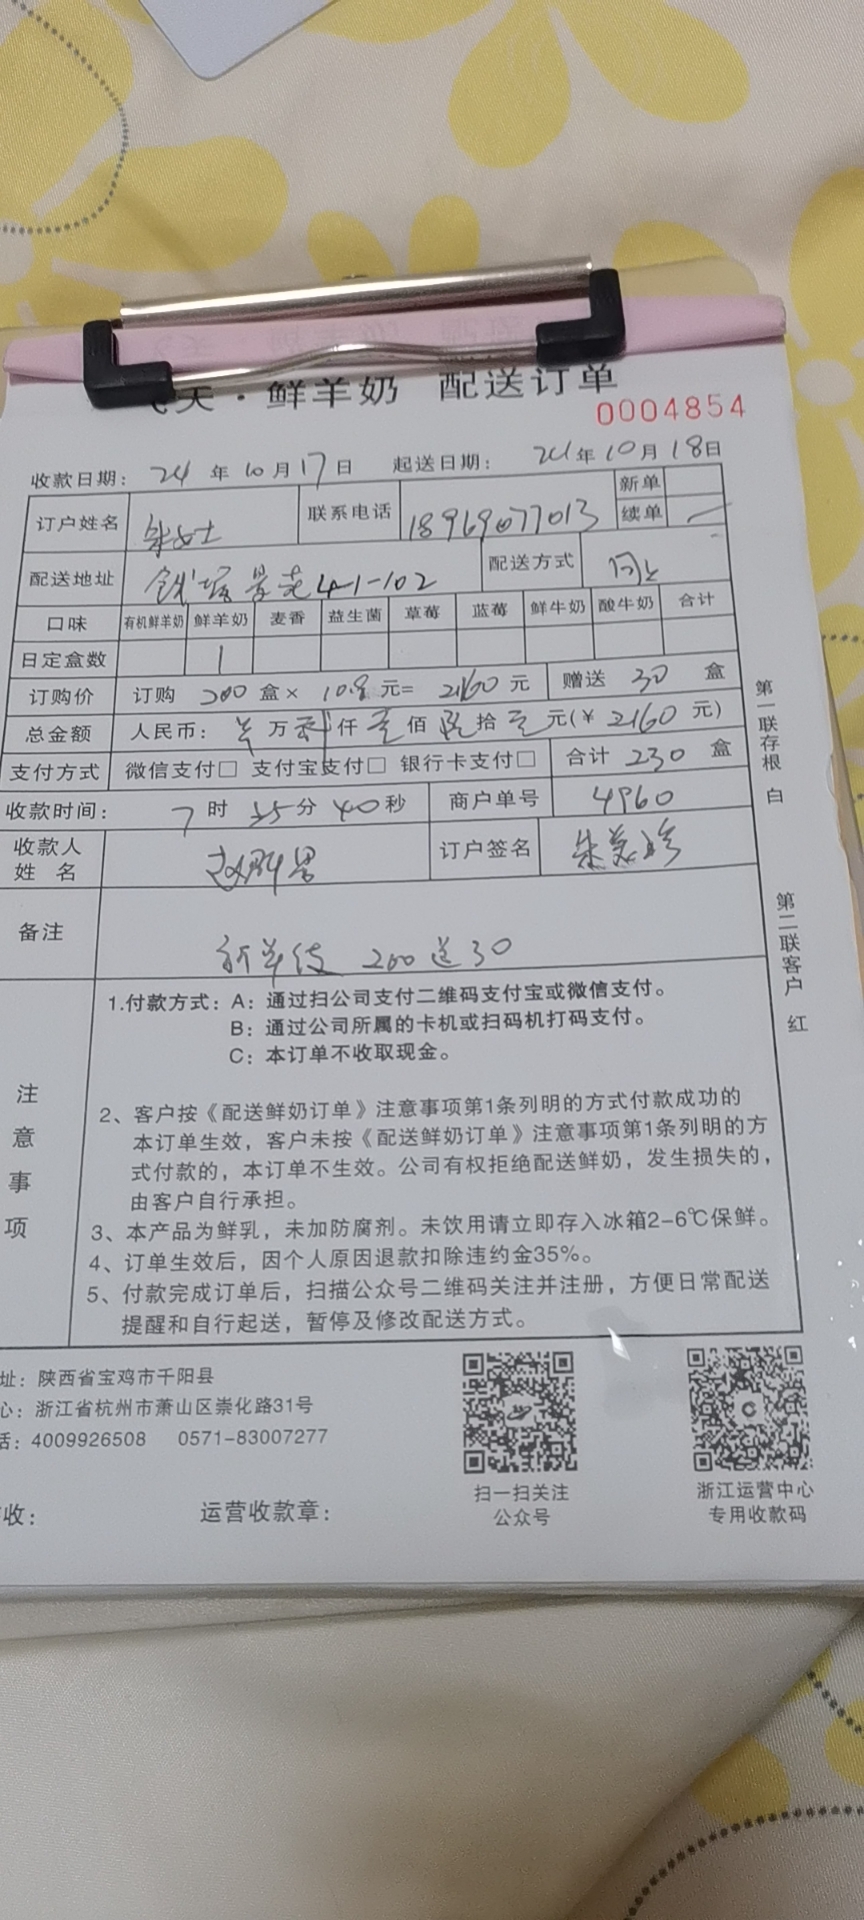 天·鲜羊奶 配送订单
0004854
收款日期: 24 年 10 月 17 日 起送日期: 24 年 10 月 18 日
订户姓名 朱女士 联系电话 18969077013 新单
续单
配送地址 景苑 41-1-102 配送方式 同上
口味 有机鲜羊奶 鲜羊奶 麦香 益生菌 草莓 蓝莓 鲜牛奶 酸牛奶 合计
日定盒数 1
订购价 订购 200 盒× 10.8 元= 2160 元 赠送 30 盒
总金额 人民币: 万 仟 壹 佰 陆 拾 元(¥ 2160 元)
支付方式 微信支付□ 支付宝支付□ 银行卡支付□ 合计 230 盒
收款时间: 7 时 35 分 40 秒 商户单号 4960
收款人
姓 名 订户签名 朱美珍
备注 200送30
注意事项
1.付款方式: A: 通过扫公司支付二维码支付宝或微信支付。
B: 通过公司所属的卡机或扫码机打码支付。
C: 本订单不收取现金。
2、客户按《配送鲜奶订单》注意事项第1条列明的方式付款成功的
本订单生效，客户未按《配送鲜奶订单》注意事项第1条列明的方
式付款的，本订单不生效。公司有权拒绝配送鲜奶，发生损失的，
由客户自行承担。
3、本产品为鲜乳，未加防腐剂。未饮用请立即存入冰箱2-6℃保鲜。
4、订单生效后，因个人原因退款扣除违约金35%。
5、付款完成订单后，扫描公众号二维码关注并注册，方便日常配送
提醒和自行起送，暂停及修改配送方式。
第一联存根 白
第二联客户 红
址: 陕西省宝鸡市千阳县
心: 浙江省杭州市萧山区崇化路31号
话: 4009926508 0571-83007277
收: 运营收款章:
扫一扫关注
公众号
浙江运营中心
专用收款码